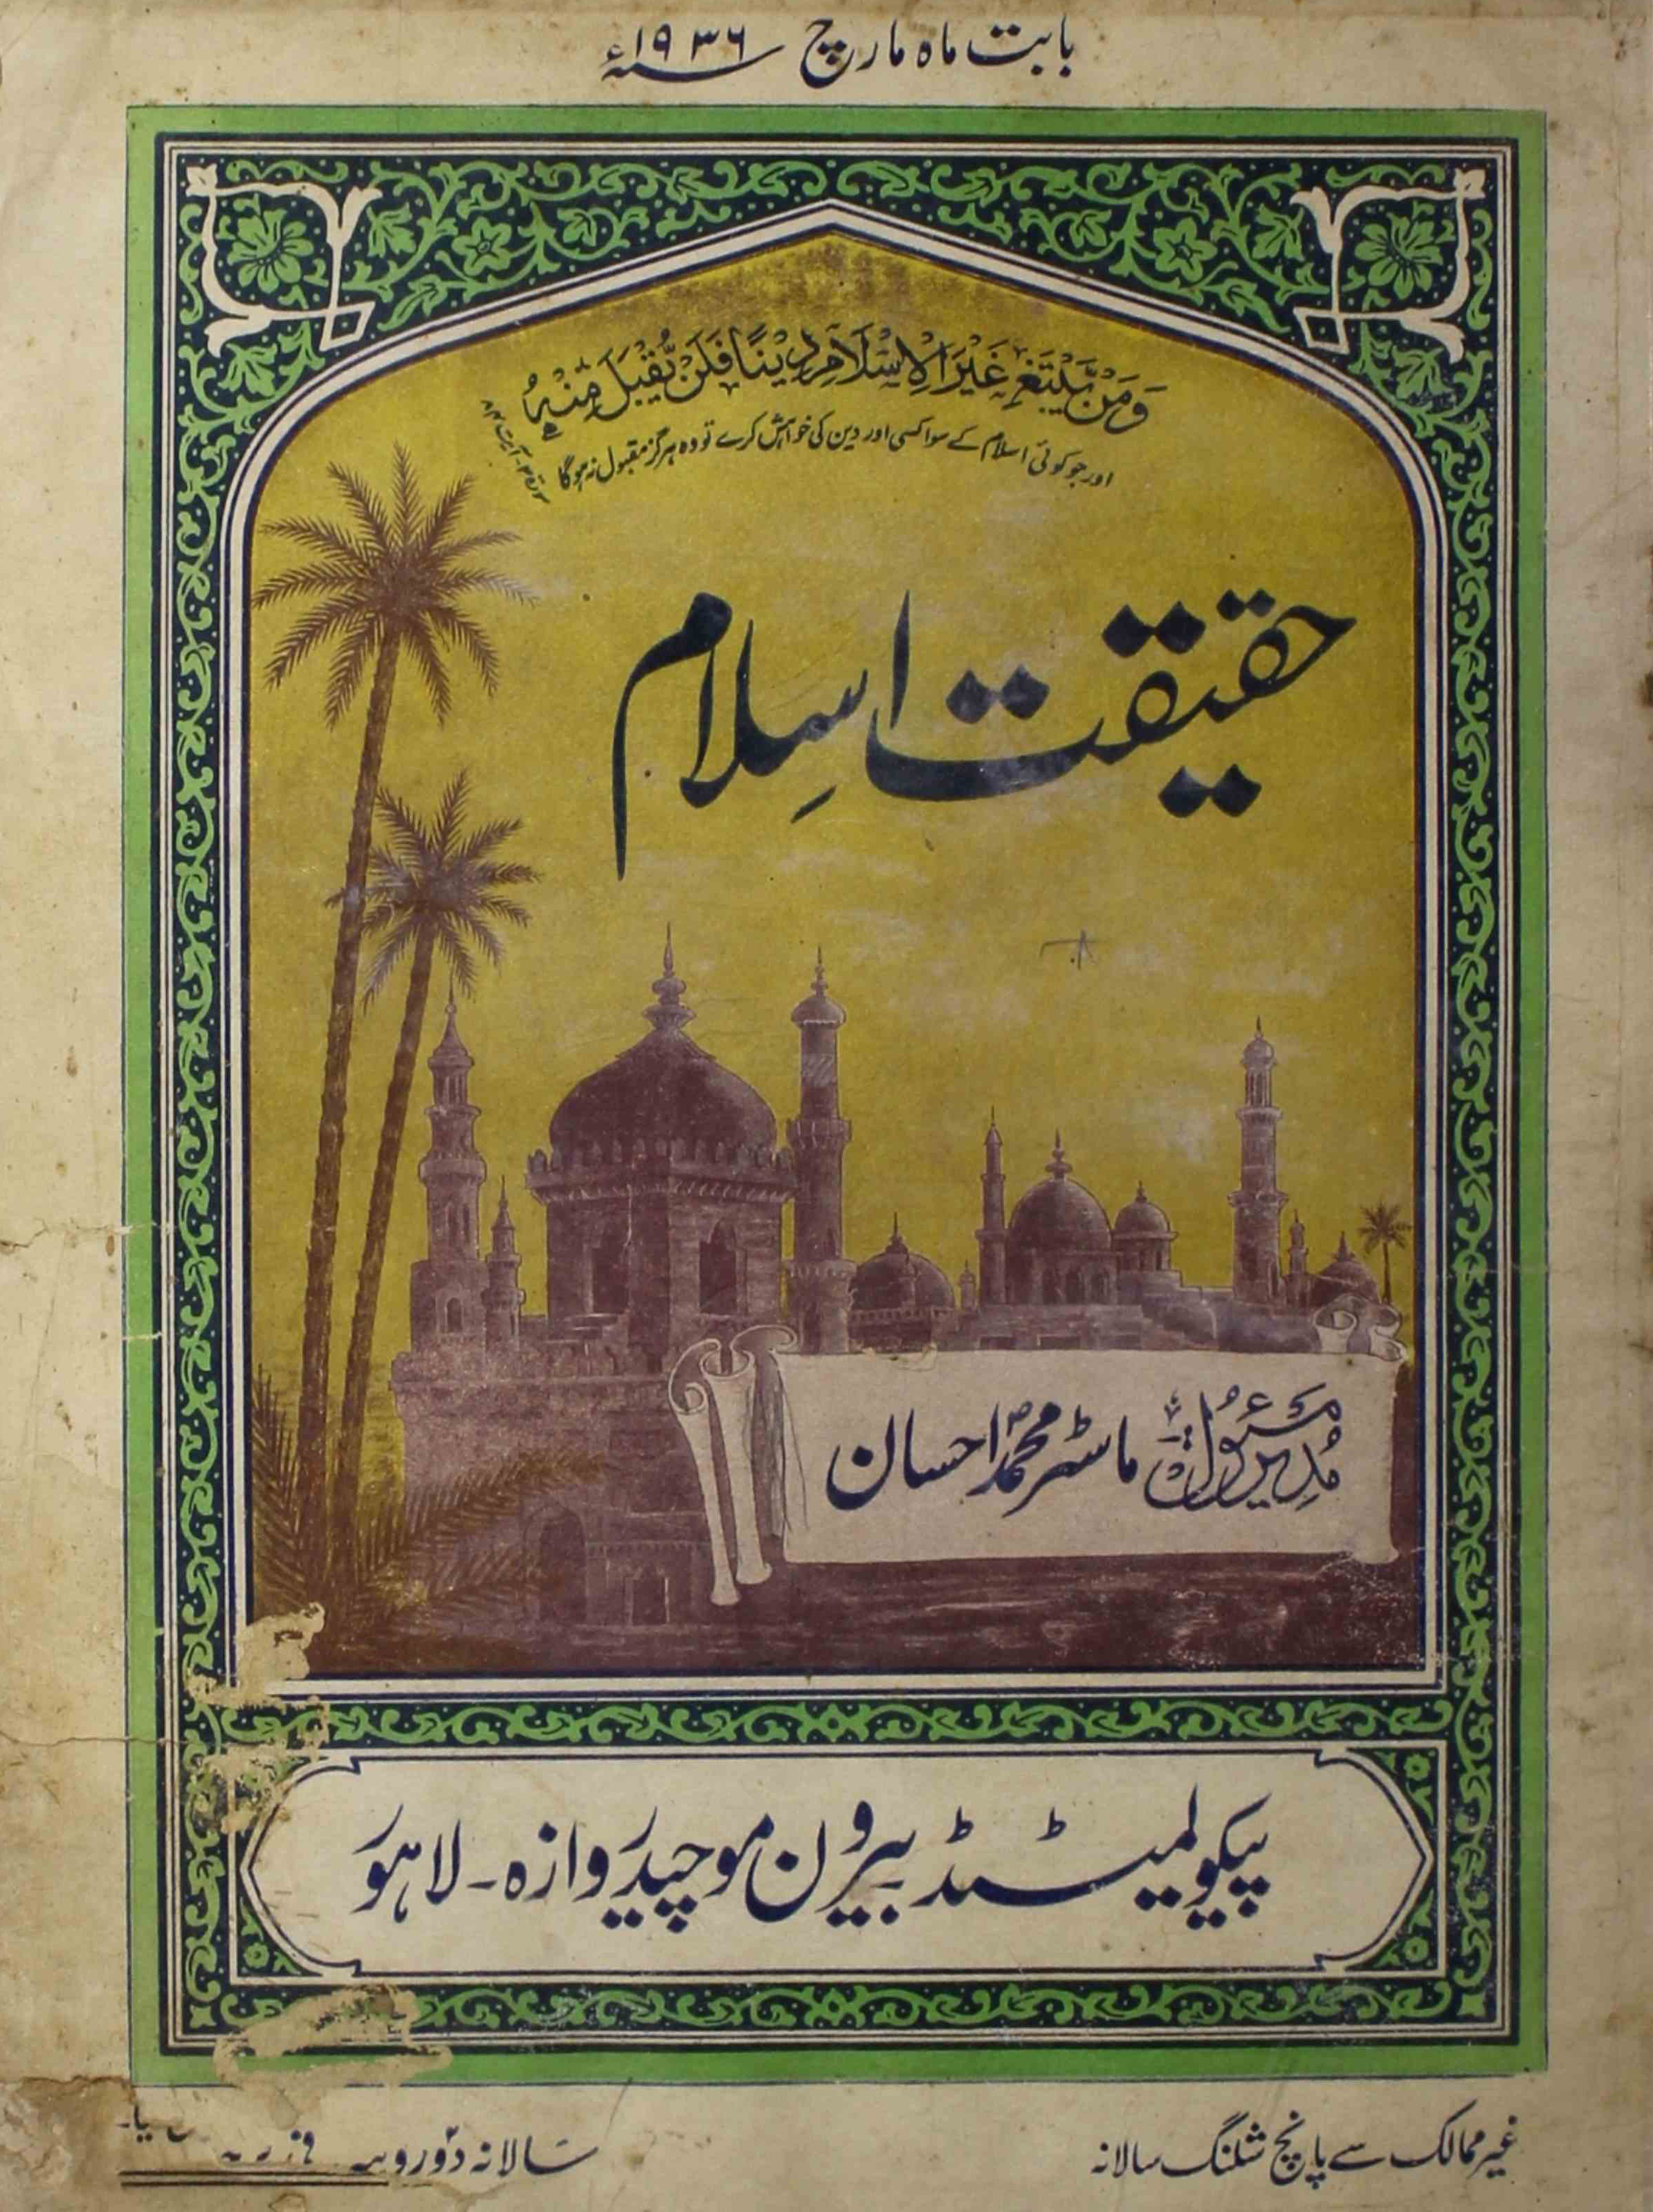 بابت ماہ مارچ ۱۹۳۶ء
وَمَنْ يَّبْتَغِ غَيْرَ الْاِسْلَامِ دِيْنًا فَلَنْ يُّقْبَلَ مِنْهُ
اور جو کوئی اسلام کے سوا کسی اور دین کی خواہش کرے تو وہ ہرگز مقبول نہ ہوگا
حقیقت اسلام
مدیر مسئول ماسٹر محمد احسان
پیکو لمیٹڈ بیرون موچیدروازہ۔ لاہور
غیر ممالک سے پانچ شلنگ سالانہ
سالانہ دو روپیہ